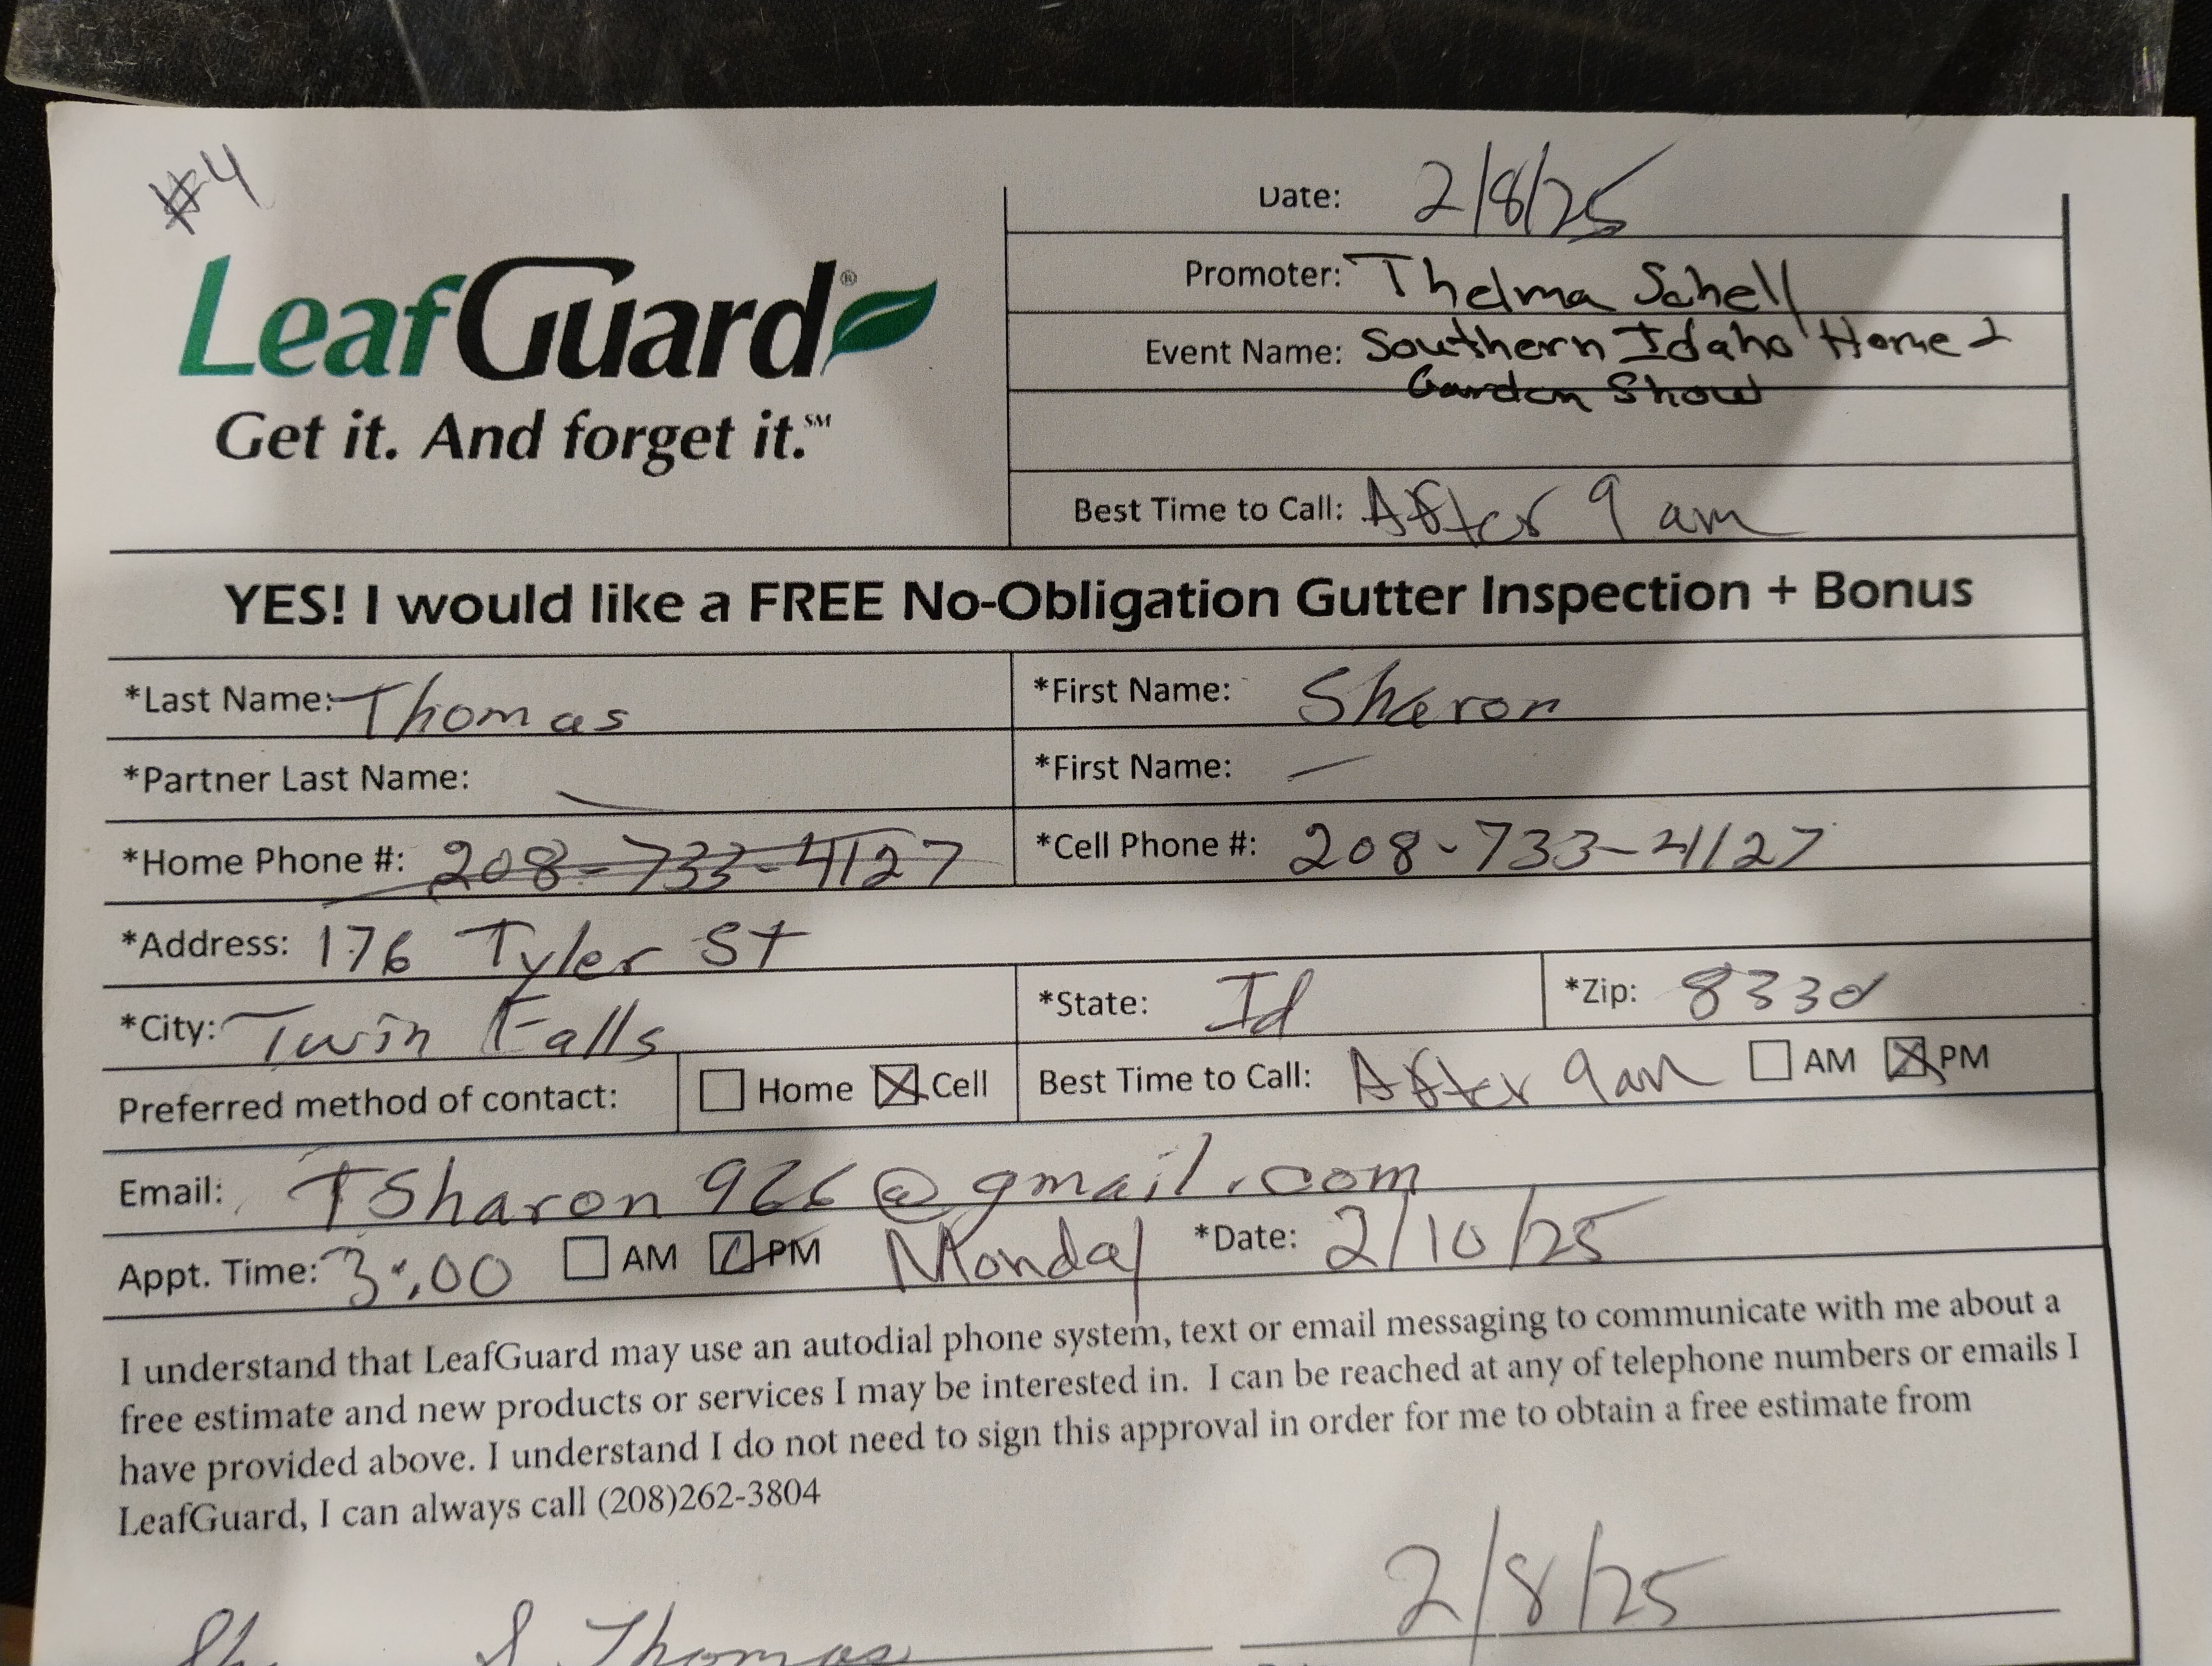 #4
LeafGuard®
Get it. And forget it.℠
Date: 2/8/25
Promoter: Thelma Schell
Event Name: Southern Idaho Home &
Garden Show
Best Time to Call: After 9 am
YES! I would like a FREE No-Obligation Gutter Inspection + Bonus
*Last Name: Thomas *First Name: Sharon
*Partner Last Name: *First Name: —
*Home Phone #: 208-733-4127 *Cell Phone #: 208-733-4127
*Address: 176 Tyler St
*City: Twin Falls *State: Id *Zip: 83301
Preferred method of contact: ☐ Home ☒ Cell Best Time to Call: After 9am ☐ AM ☒ PM
Email: TSharon966@gmail.com
Appt. Time: 3:00 ☐ AM ☑ PM Monday *Date: 2/10/25
I understand that LeafGuard may use an autodial phone system, text or email messaging to communicate with me about a
free estimate and new products or services I may be interested in. I can be reached at any of telephone numbers or emails I
have provided above. I understand I do not need to sign this approval in order for me to obtain a free estimate from
LeafGuard, I can always call (208)262-3804
Thomas 2/8/25